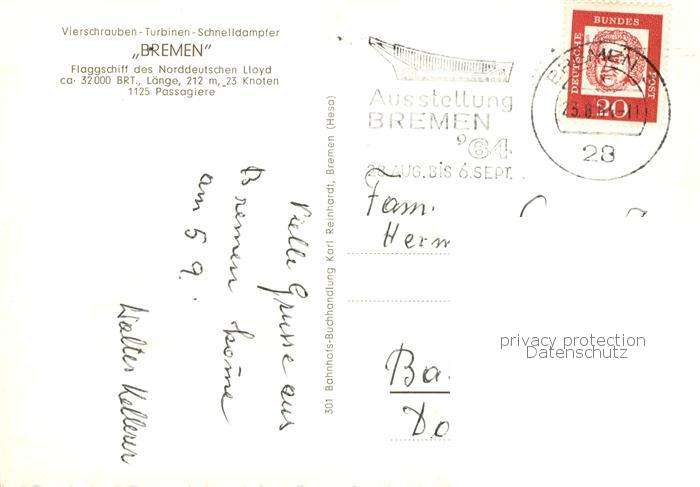 Vierschrauben-Turbinen-Schnelldampfer
„BREMEN"
Flaggschiff des Norddeutschen Lloyd
ca. 32000 BRT., Länge, 212 m, 23 Knoten
1125 Passagiere
Ausstellung
BREMEN
'64
28 AUG. BIS 6. SEPT.
BREMEN
28
DEUTSCHE
BUNDES
POST
20
301 Bahnhofs-Buchhandlung Karl Reinhardt, Bremen (Hesa)
Fam.
Herm
Ba.
Do
Vielle Grusse aus
Bremen komme
am 5 9.
Walter Kellerer
privacy protection
Datenschutz